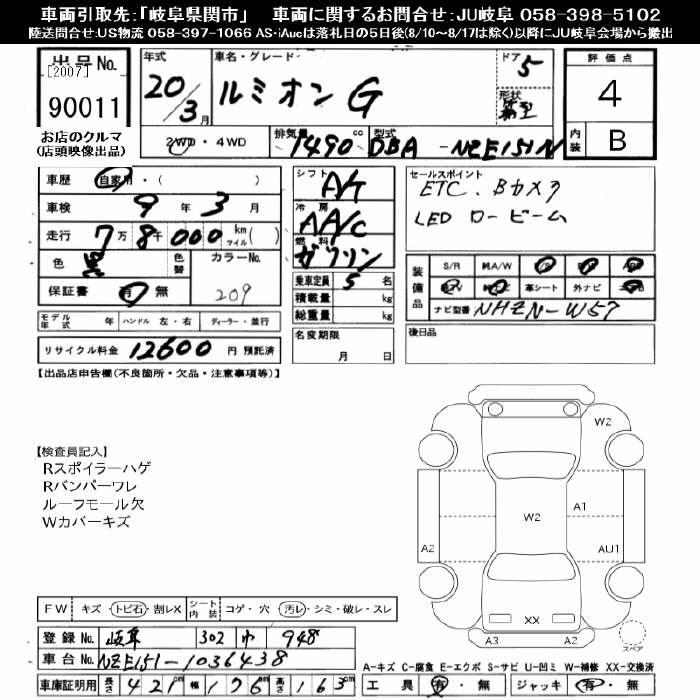 車両引取先:「岐阜県関市」 車両に関するお問合せ:JU岐阜 058-398-5102
陸送問合せ:US物流 058-397-1066 AS・iAucは落札日の5日後(8/10~8/17は除く)以降にJU岐阜会場から搬出
出品No.
[2007]
90011
お店のクルマ
(店頭映像出品)
年式 20/3月
車名・グレード ルミオン G
ドア 5
形状 箱型
2WD・4WD
排気量 1490 cc
型式 DBA-NZE151N
評価点
4
内装 B
車歴 自家用・( )
車検 9年 3月
走行 7万8千000 km マイル( )
色 黒 色替 カラーNo. 209
保証書 有・無
モデル年式 年 ハンドル 左・右 ディーラー・並行
リサイクル料金 12600 円 預託済
シフト A/T
冷房 AA/C
燃料 ガソリン
乗車定員 5 名
積載量 kg
総重量 kg
名変期限
月 日
セールスポイント
ETC. Bカメラ
LED ロービーム
装備品 S/R MA/W
革シート 外ナビ
ナビ型番 NHZN-W57
後日品
【出品店申告欄(不良箇所・欠品・注意事項等)】
【検査員記入】
Rスポイラーハゲ
Rバンパーワレ
ルーフモール欠
Wカバーキズ
W2
W2
A1
A2
AU1
XX
A3
A2
スペア
FW キズ・トビ石・割レX シート内装 コゲ・穴・汚レ・シミ・破レ・スレ
登録No. 岐阜 302 948
車台No. NZE151-1036438
車庫証明用 長さ 421cm 幅 176cm 高さ 163cm
A-キズ C-腐食 E-エクボ S-サビ U-凹ミ W-補修 XX-交換済
工具 有・無 ジャッキ 有・無